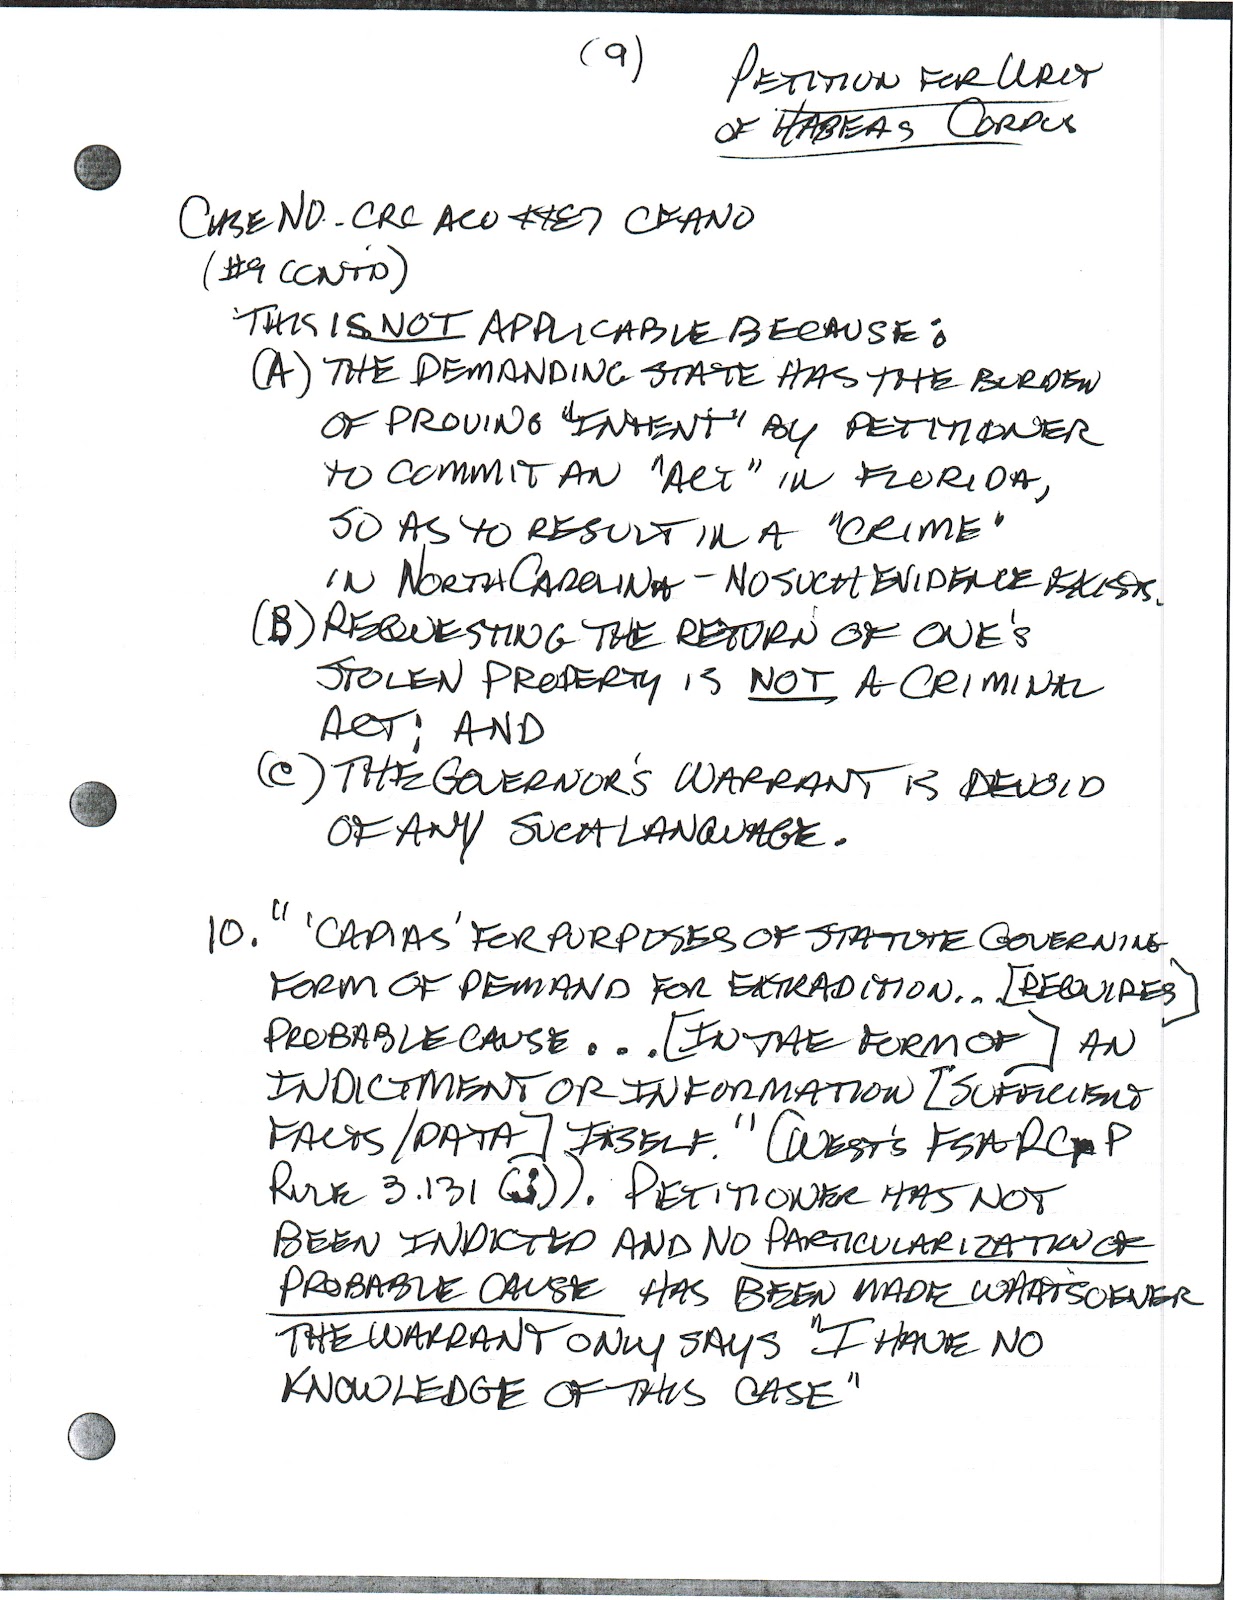 (9)
PETITION FOR WRIT
OF HABEAS CORPUS
CASE NO. - CRC CFANO
(#9 CONT'D)
THIS IS NOT APPLICABLE BECAUSE:
(A) THE DEMANDING STATE HAS THE BURDEN
OF PROVING "INTENT" BY PETITIONER
TO COMMIT AN "ACT" IN FLORIDA,
SO AS TO RESULT IN A "CRIME"
IN NORTH CAROLINA - NO SUCH EVIDENCE EXISTS.
(B) REQUESTING THE RETURN OF ONE'S
STOLEN PROPERTY IS NOT A CRIMINAL
ACT; AND
(C) THE GOVERNOR'S WARRANT IS DEVOID
OF ANY SUCH LANGUAGE.
10. "'CAPIAS' FOR PURPOSES OF STATUTE GOVERNING
FORM OF DEMAND FOR EXTRADITION... [REQUIRES]
PROBABLE CAUSE... [IN THE FORM OF] AN
INDICTMENT OR INFORMATION [SUFFICIENT
FACTS/DATA] ITSELF." (WEST'S FSA RCrP
RULE 3.131 (j)). PETITIONER HAS NOT
BEEN INDICTED AND NO PARTICULARIZATION OF
PROBABLE CAUSE HAS BEEN MADE WHATSOEVER
THE WARRANT ONLY SAYS "I HAVE NO
KNOWLEDGE OF THIS CASE"